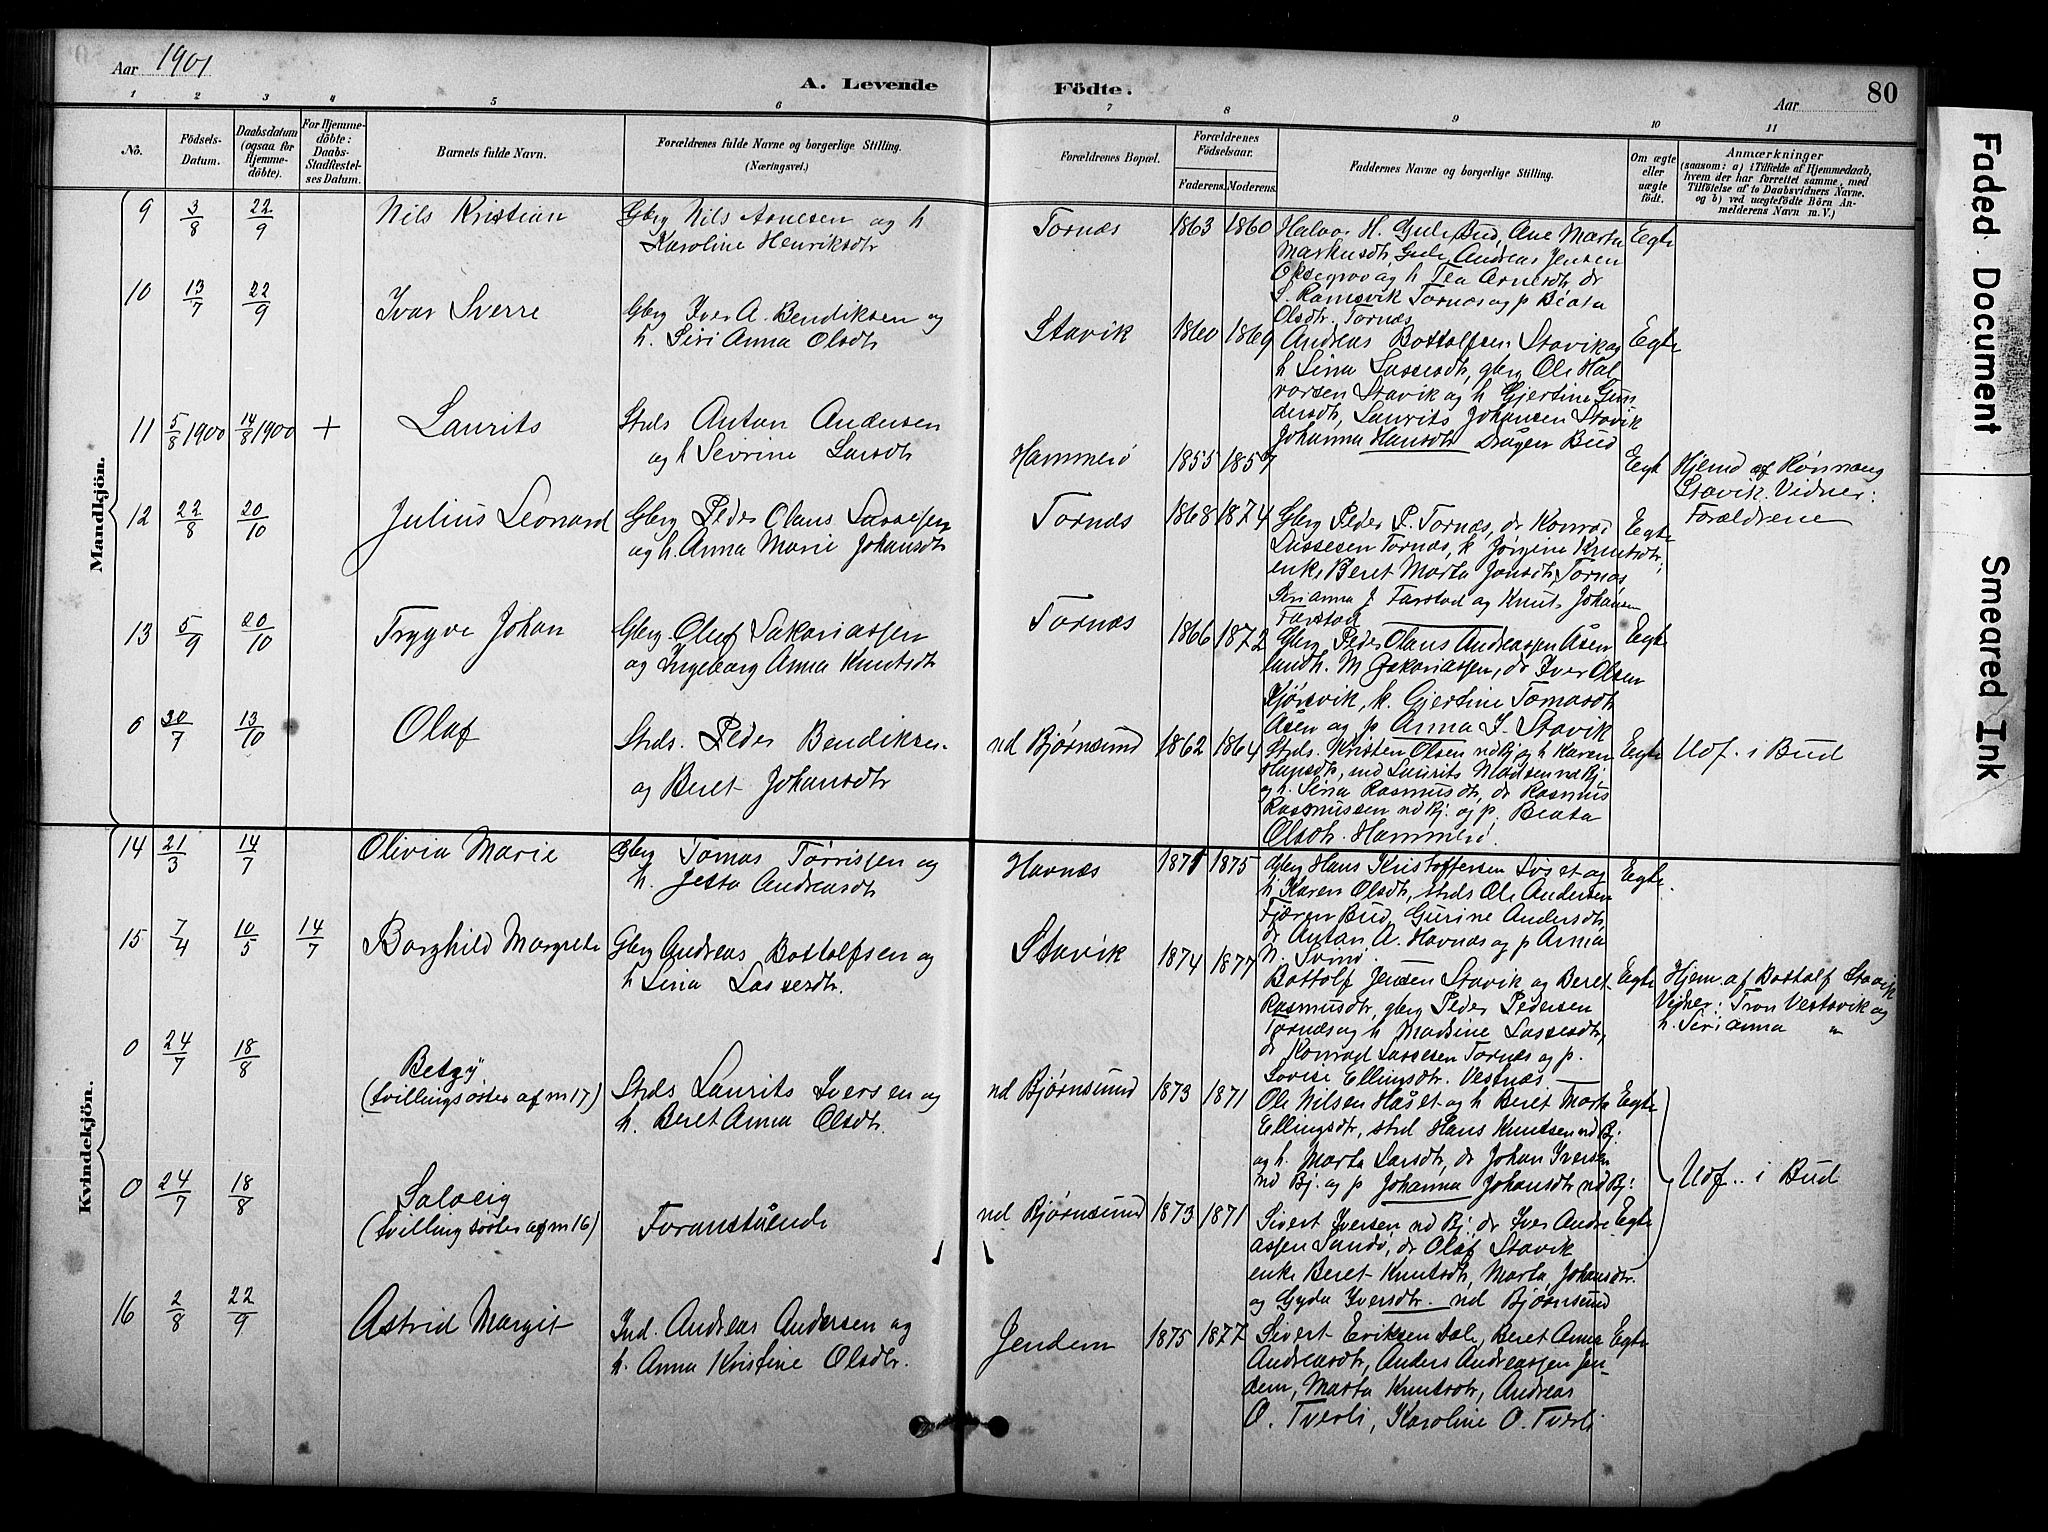 Aar 1901
A. Levende Födte.
Aar
80
1 2 3 4 5 6 7 8 9 10 11
No.
Födsels-Datum.
Daabsdatum (ogsaa for Hjemmedöbte).
For Hjemmedöbte: Daabs-Stadfestelses Datum.
Barnets fulde Navn.
Forældrenes fulde Navne og borgerlige Stilling. (Næringsvei.)
Forældrenes Bopæl.
Forældrenes Födselsaar.
Faderens. Moderens.
Faddernes Navne og borgerlige Stilling.
Om ægte eller uægte födt.
Anmærkninger
(saasom: a) i Tilfælde af Hjemmedaab, hvem der har forrettet samme, med Tilföielse af to Daabsvidners Navne. og b) ved uægtefödte Börn Anmelderens Navn m. V.)
Mandkjön.
9 3/8 22/9 Nils Kristian
Gbrg Nils Arnesen og h
Karoline Henriksdtr
Tornæs 1863 1860
Halvor H. Gule, Bud, Ane Marta
Markusdtr, Gule, Andreas Jensen
Oksegrov og h Tea Arnesdtr dr
S. Ramsvik Tornæs og p Beata
Olsdtr. Tornæs
Egte
10 13/7 22/9 Ivar Sverre
Gbrg Iver A. Bendiksen og
h. Siri Anna Olsdtr
Stavik 1860 1869
Andreas Bottolfsen Stavik og
h Sina Lassesdtr, gbrg Ole Hal
vorsen Stavik og h Gjertine Gun
dersdtr, Laurits Johansen Stavik
Johanna Hansdtr Drågen Bud
Egte
11 5/8 1900 14/8 1900 + Laurits
Strds Anton Andersen
og h Sevrine Larsdtr
Hammerö 1855 1857
Egte
Hjemd af Rönnaug
Stavik. Vidner:
Forældrene
12 22/8 20/10 Julius Leonard
Gbrg Peder Olaus Lassesen
og h. Anna Marie Johansdtr
Tornæs 1868 1874
Gbrg Peder P. Tornæs, dr Konrad
Lassesen Tornæs, k Jörgine Knutsdtr,
enke Beret Marta Jonsdtr, Tornæs
Serianna J Farstad og Knut Johansen
Farstad
Egte
13 5/9 20/10 Trygve Johan
Gbrg. Oluf Sakariassen
og Ingeborg Anna Knutsdtr
Tornæs 1866 1872
Gbrg Peder Olaus Andreassen Åsen
landh. M Zakariassen, dr Iver Olsen
Kjörsvik, k. Gjertine Tomasdtr
Åsen og p Anna I. Stavik
Egte
0 30/7 13/10 Olaf
Strds. Peder Bendiksen
og Beret Johansdtr
nd Bjørnsund 1862 1864
Strds. Kristen Olsen nd Bj og h Karen
Hansdtr, md Laurits Madsen nd Bj.
og h. Sina Rasmusdtr, dr Rasmus
Rasmussen nd Bj. og p. Beata
Olsdtr. Hammerö.
Egte
Udf. i Bud
Kvindekjön.
14 21/3 14/7 Olivia Marie
Gbrg Tomas Törrissen og
h. Jetta Andreasdtr
Havnæs 1871 1875
Gbrg Hans Kristoffersen Löset og
h Karen Olsdtr, strds Ole Andersen
Fjæren Bud, Gurine Andersdtr,
dr Anton A. Havnæs og p Anna
N. Svino
Egte.
15 7/4 10/5 14/7 Borghild Margrete
Gbrg Andreas Bottolfsen og
h Sina Lassesdtr.
Stavik 1874 1877
Bottolf Jensen Stavik og Beret
Rasmusdtr, gbrg Peder Pedersen
Tornæs og h Madsine Lassesdtr,
dr Konrad Lassesen Tornæs og p.
Lovise Ellingsdtr. Vestnæs
Egte
Hjem. af Bottolf Stavik
Vidner: Tron Vestavik og
h. Serianna "
0 24/7 18/8 Betzÿ
(tvillingsöster af no 17)
Strds Laurits Iversen og
h. Beret Anna Olsdtr.
nd Bjørnsund 1873 1871
Ole Nilsen Håset og h Beret Marta
Ellingsdtr, strd Hans Knutsen nd Bj.
og h. Marta Larsdtr, dr Johan Iversen
nd Bj. og p Johanna Johansdtr nd Bj.
Egte
Udf.. i Bud
0 24/7 18/8 Solveig
(tvillingsöster af no 16)
Foranstående
nd Bjørnsund 1873 1871
Sivert Iversen nd Bj, dr Iver Andre
assen Sandö, dr Olaf Stavik
enke Beret Knutsdtr, Marta Johansdtr.
og Gyda Iversdtr. nd Bjørnsund
Egte
16 2/8 22/9 Astrid Margit
Ind. Andreas Andersen og
h. Anna Kristine Olsdtr.
Jendem 1875 1877
Sivert Eriksen Dale, Beret Anna
Andreasdtr, Anders Andreassen Jen-
dem, Marta Knutsdtr, Andreas
O. Tverli, Karoline O. Tverli
Egte
Faded Document
Smeared Ink